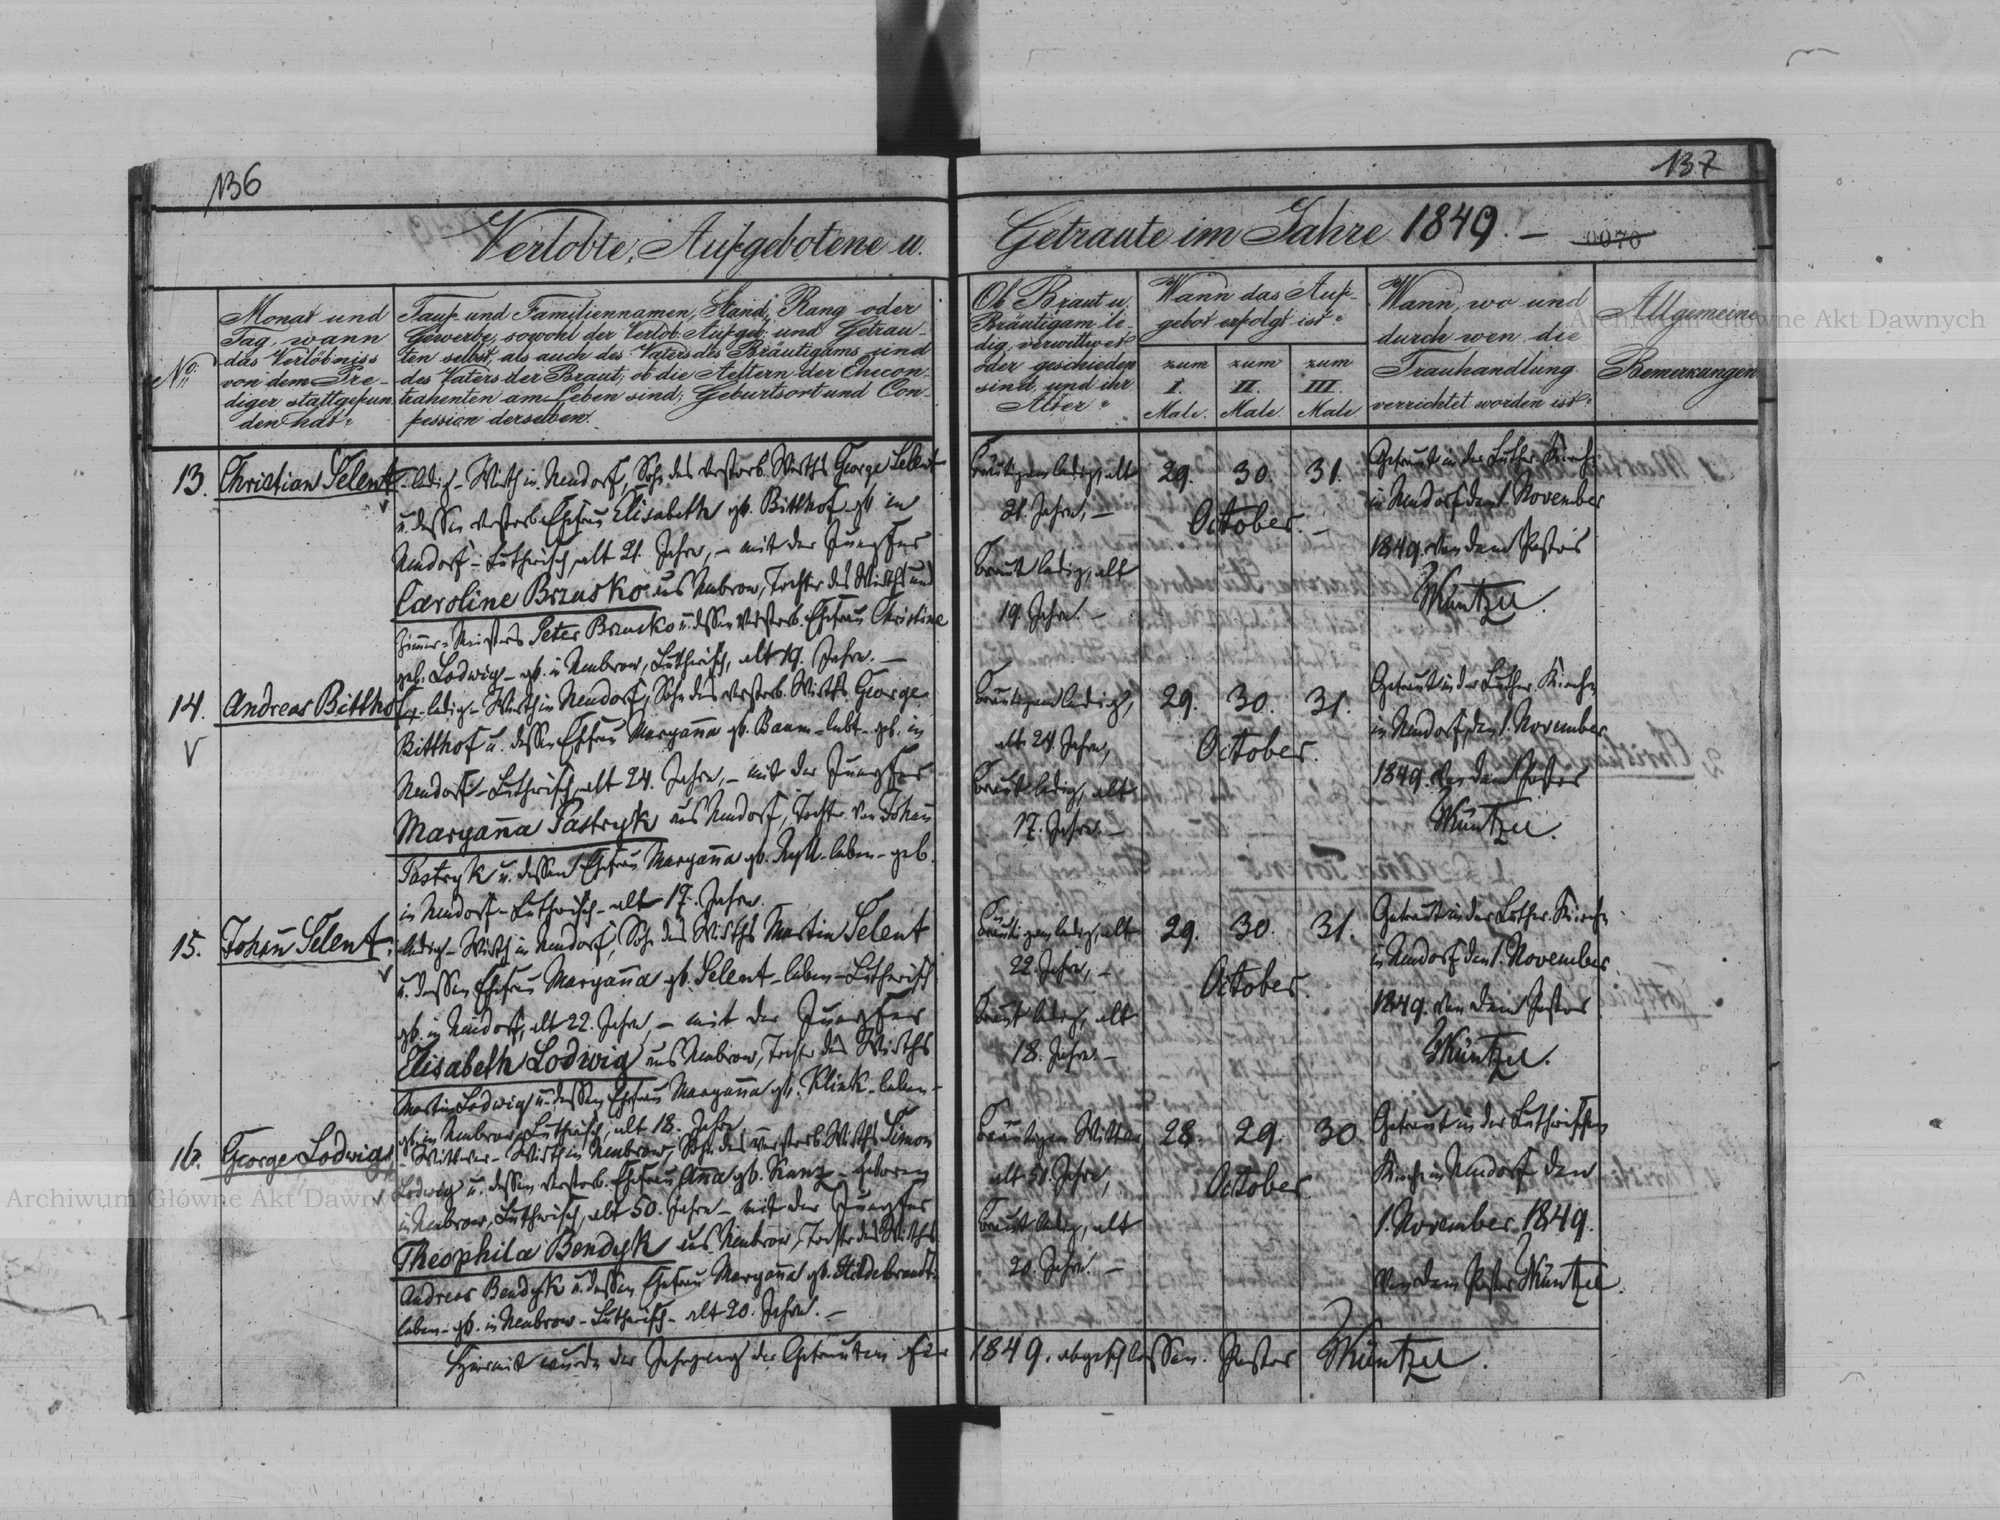 136
137
Verlobte, Aufgebotene u. Getraute im Jahre 1849. –
0070
No:
Monat und
Tag, wann
das Verlöbniss
von dem Pre-
diger stattgefun
den hat:
Tauf und Familiennamen, Stand, Rang oder
Gewerbe, sowohl der Verlob. Aufgeb. und Getrau-
ten selbst, als auch des Vaters des Bräutigams und
des Vaters der Braut; ob die Aeltern der Ehecon-
trahenten am Leben sind; Geburtsort und Con-
fession derselben.
Ob Braut u.
Bräutigam le-
dig, verwittwet
oder geschieden
sind, und ihr
Alter:
Wann das Auf-
gebot erfolgt ist:
zum
I.
Male.
zum
II.
Male.
zum
III.
Male
Wann, wo und
durch wen die
Trauhandlung
verrichtet worden ist:
Allgemeine
Bemerkungen
13. Christian Selent
ledig – Wirth in Neudorf, Sohn des verstorb. Wirths George Selent
u. dessen verstorb. Ehefrau Elisabeth gb. Bitthof – gb. in
Neudorf – Lutherisch, alt 21. Jahre, – mit der Jungfer
Caroline Brzusko aus Neubrow, Tochter des Wirths und
Zimmer-Meisters Peter Brzusko u. dessen verstorb. Ehefrau Christine
geb. Lodwig – gb. in Neubrow, Lutherisch, alt 19. Jahre. –
Bräutigam ledig, alt
21. Jahre, –
Braut ledig, alt
19 Jahre. –
29. 30. 31.
October. –
Getraut in der Luther. Kirche
in Neudorf den 1. November
1849. von dem Pastor
Müntzel.
14. Andreas Bitthof
ledig – Wirth in Neudorf, Sohn des verstorb. Wirths George
Bitthof u. dessen Ehefrau Maryanna gb. Baum – lebt – geb. in
Neudorf – Lutherisch, alt 24. Jahre, – mit der Jungfer
Maryanna Pastryk aus Neudorf, Tochter von Johann
Pastryk u. dessen Ehefrau Maryanna gb. – leben – geb.
in Neudorf – Lutherisch – alt 17. Jahre.
Bräutigam ledig,
alt 24 Jahre,
Braut ledig, alt
17. Jahre. –
29. 30. 31.
October.
Getraut in der Luther. Kirche
in Neudorf, den 1. November
1849. von dem Pastor
Müntzel.
15. Johann Selent.
ledig – Wirth in Neudorf, Sohn des Wirths Martin Selent
u. dessen Ehefrau Maryanna gb. Selent – leben – Lutherisch
gb. in Neudorf, alt 22. Jahre, – mit der Jungfer
Elisabeth Lodwig aus Neubrow, Tochter des Wirths
Martin Lodwig u. dessen Ehefrau Maryanna gb. Klink – leben –
gb. in Neubrow, Lutherisch, alt 18. Jahre.
Bräutigam ledig, alt
22. Jahre, –
Braut ledig, alt
18. Jahre. –
29. 30. 31.
October.
Getraut in der Luther. Kirche
in Neudorf den 1. November
1849. von dem Pastor
Müntzel.
16. George Lodwig
– Wittwer – Wirth in Neubrow, Sohn des verstorb. Wirths Simon
Lodwig u. dessen verstorb. Ehefrau Anna gb. Kanz – geboren
in Neubrow, Lutherisch, alt 50. Jahre – mit der Jungfer
Theophila Bendyk aus Neubrow, Tochter des Wirths
Andreas Bendyk u. dessen Ehefrau Maryanna gb. Hildebrandt
leben – gb. in Neubrow – Lutherisch – alt 20. Jahre. –
Bräutigam Wittwer,
alt 50. Jahre,
Braut ledig, alt
20. Jahre. –
28. 29. 30
October
Getraut in der Lutherischen
Kirche in Neudorf den
1. November 1849.
von dem Pastor Müntzel.
Hiermit wurde der Jahrgang der Getrauten für 1849. abgeschlossen. Pastor Müntzel.
Archiwum Główne Akt Dawnych
Archiwum Główne Akt Dawnych